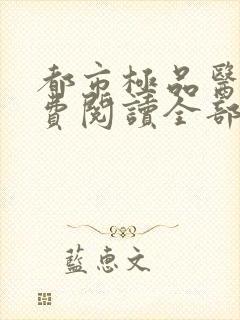 都市極品醫
費閱讀全部
藍惠文